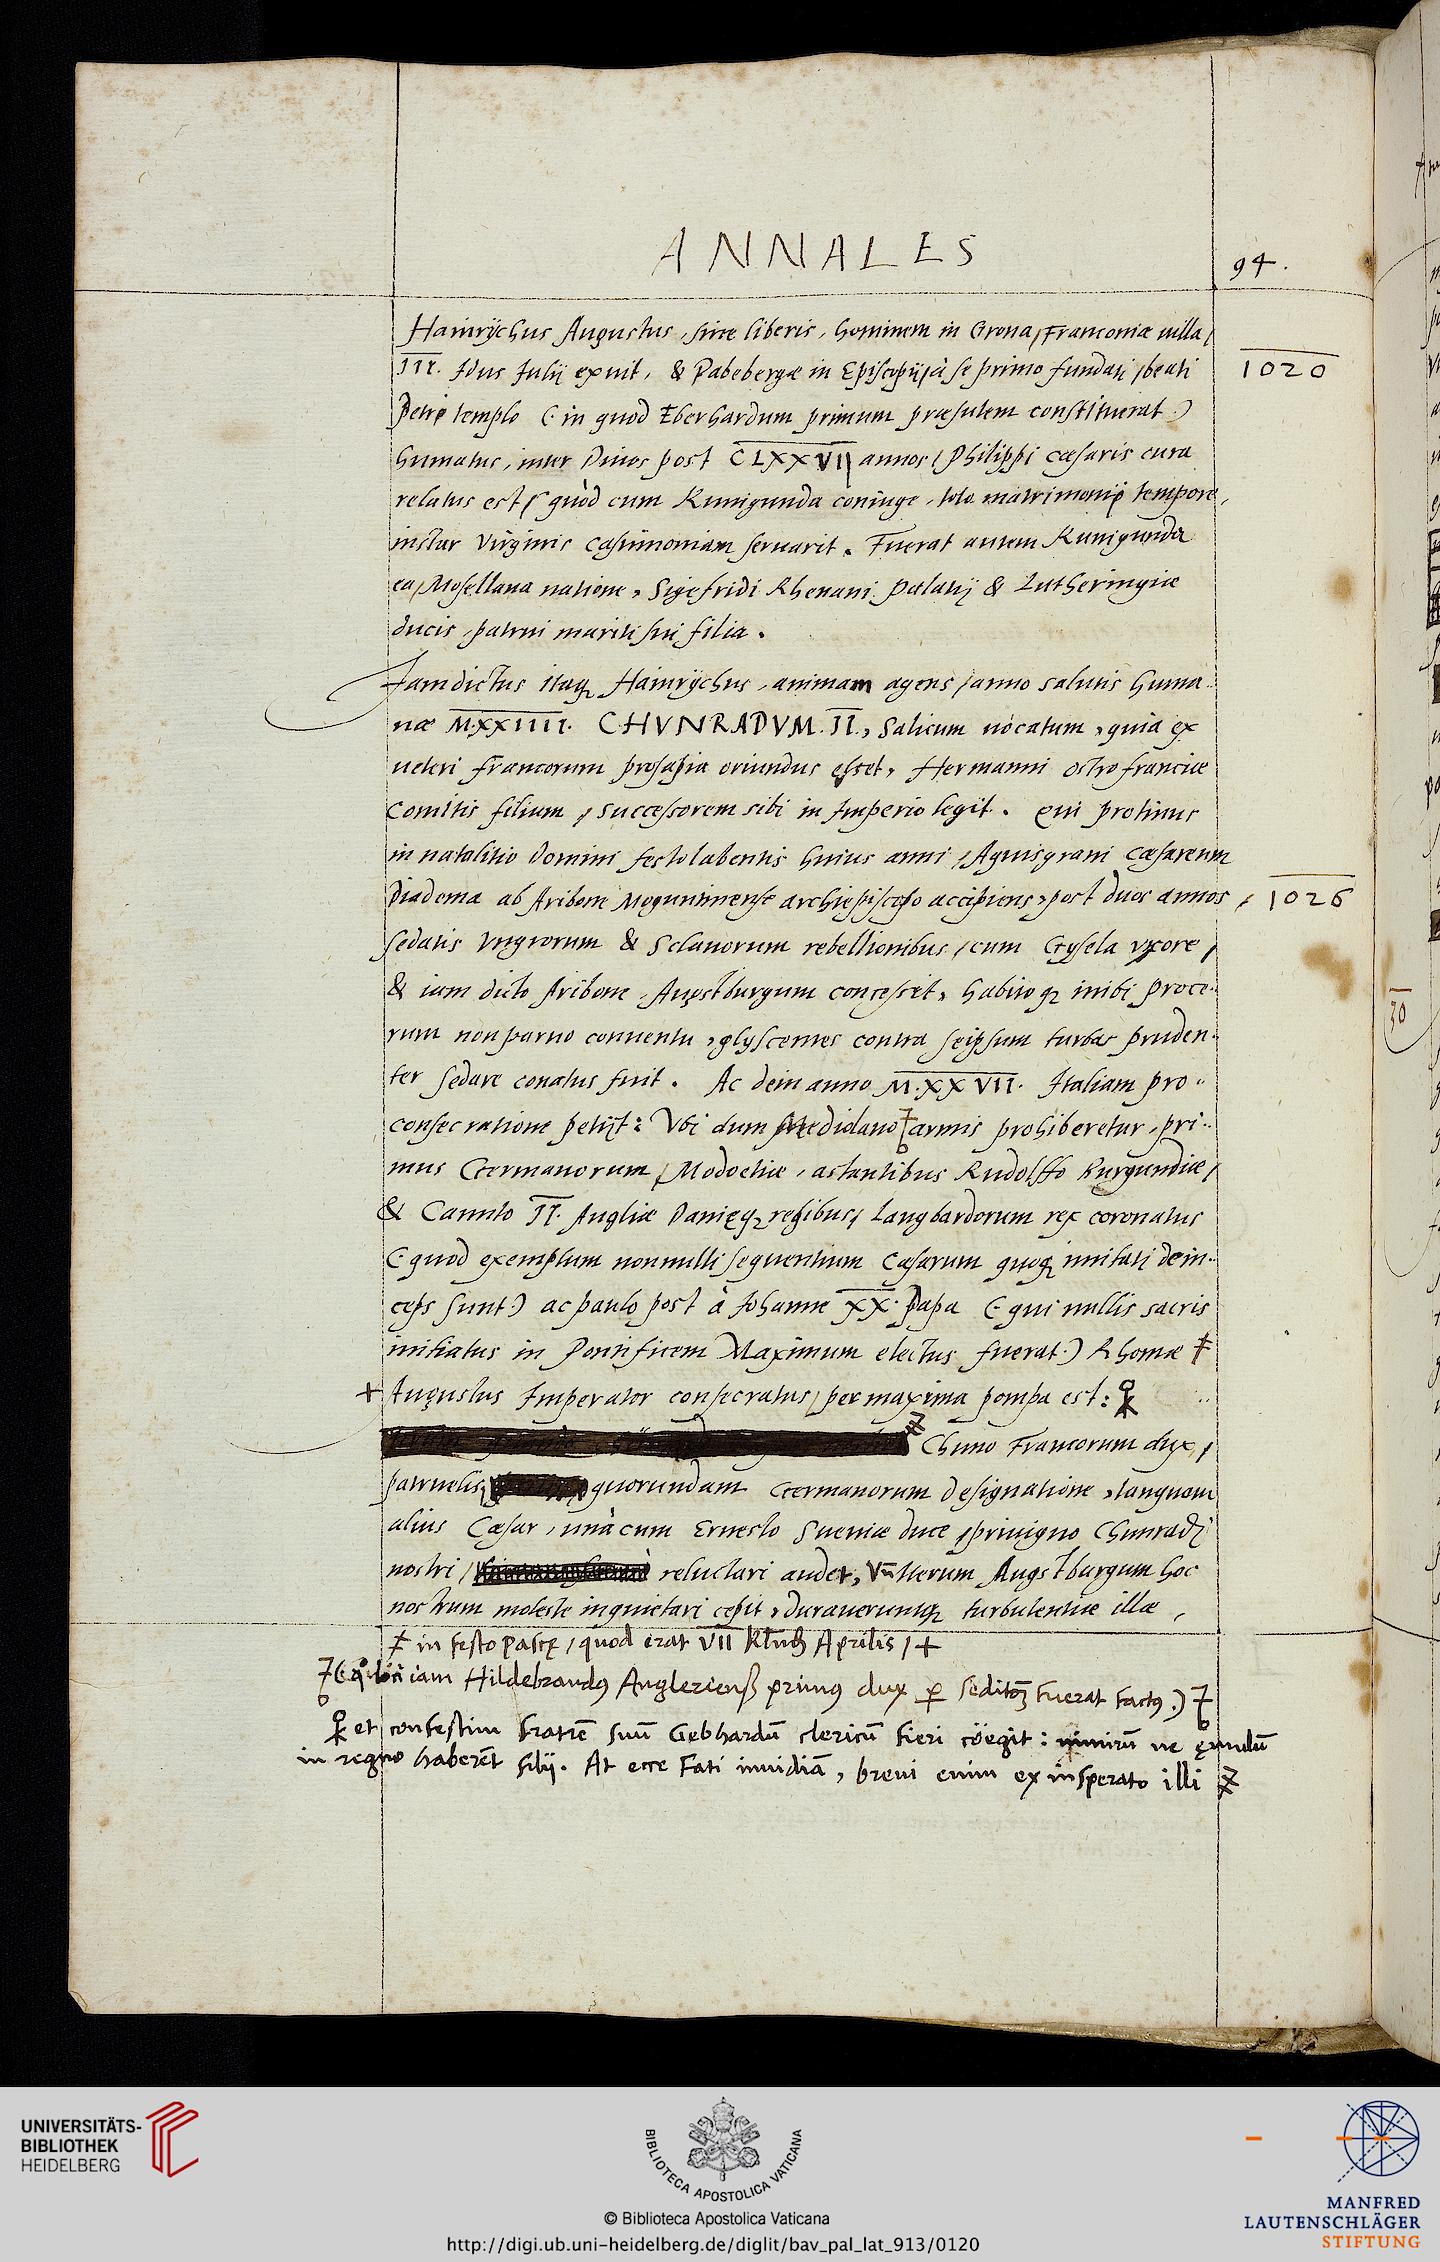 ANNALES
94.
Hainrÿchus Augustus, sine liberis, hominem in Grona, Franconiæ uilla,
III. Idus Julij exuit, & Pabebergæ in Episcopij, à se primo fundati, beati
1020
Petri templo (in quod Eberhardum primum præsulem constituerat)
humatus, inter Diuos post CLXXVII annos, Philippi cæsaris cura
relatus est, quòd cum Kunigunda coniuge, toto matrimonij tempore,
instar Virginis castimoniam seruarit. Fuerat autem Kunigunda
ea, Mosellana natione, Sigefridi Rhenani Palatij & Lutheringiæ
ducis, patrui mariti sui filia.
Jam dictus itaqꝫ Hainrÿchus, animam agens, anno salutis huma-
næ MXXIIII. CHVNRADVM. II., Salicum uocatum, quia ex
ueteri Francorum prosapia oriundus esset, Hermanni Ostrofranciæ
Comitis filium, successorem sibi in Imperio legit. Qui protinus
in natalitio Domini festo labentis huius anni, Aquisgrani Cæsareum
Diadema ab Aribone Moguntinense archiepiscopo accipiens, post duos annos,
1026
sedatis Vngrorum & Sclauorum rebellionibus, cum Gysela vxore,
& iam dicto Aribone, Augstburgum concessit, habitoqꝫ inibi proce-
rum non paruo conuentu, glyscentes contra seipsum turbas pruden-
ter sedare conatus fuit. Ac dein anno M.XXVII. Italiam pro
consecratione petijt: Vbi dum Mediolano armis prohiberetur, pri-
mus Germanorum, Modoetiæ, astantibus Rudolffo Burgundiæ,
& Canuto II. Angliæ Danięqꝫ regibus, Langbardorum rex coronatus
(quod exemplum nonnulli sequentium Cæsarum quoqꝫ imitati dein-
ceps sunt) ac paulo post à Johanne XX. Papa (qui nullis sacris
initiatus in Pontificem Maximum electus fuerat) Rhomæ
+ Augustus Imperator consecratus, per maxima pompa est:
Chuno Francorum dux,
patruelis, quorundam Germanorum designatione, tanquam
alius Cæsar, unà cum Ernesto Sueuiæ duce, priuigno Chunradi
nostri, reluctari audet, Vñ iterum Augstburgum hoc
nostrum moleste inquietari cepit, duraueruntqꝫ turbulentiæ illæ,
in festo Pascę, quod erat VII Kl̃nd̃ Aprilis, +
iam Hildebrandꝰ Angleriensß primus dux ꝑ seditõꝫ fuerat factꝰ.)
et confestim fratrẽ suũ Gebhardũ clericũ fieri cöegit: nimirũ ne ęmulũ
in regno haberẽt filij. At ecce Fati inuidiã, breui enim ex insperato illi
70
UNIVERSITÄTS-
BIBLIOTHEK
HEIDELBERG
BIBLIOTECA APOSTOLICA VATICANA
© Biblioteca Apostolica Vaticana
http://digi.ub.uni-heidelberg.de/diglit/bav_pal_lat_913/0120
MANFRED
LAUTENSCHLÄGER
STIFTUNG